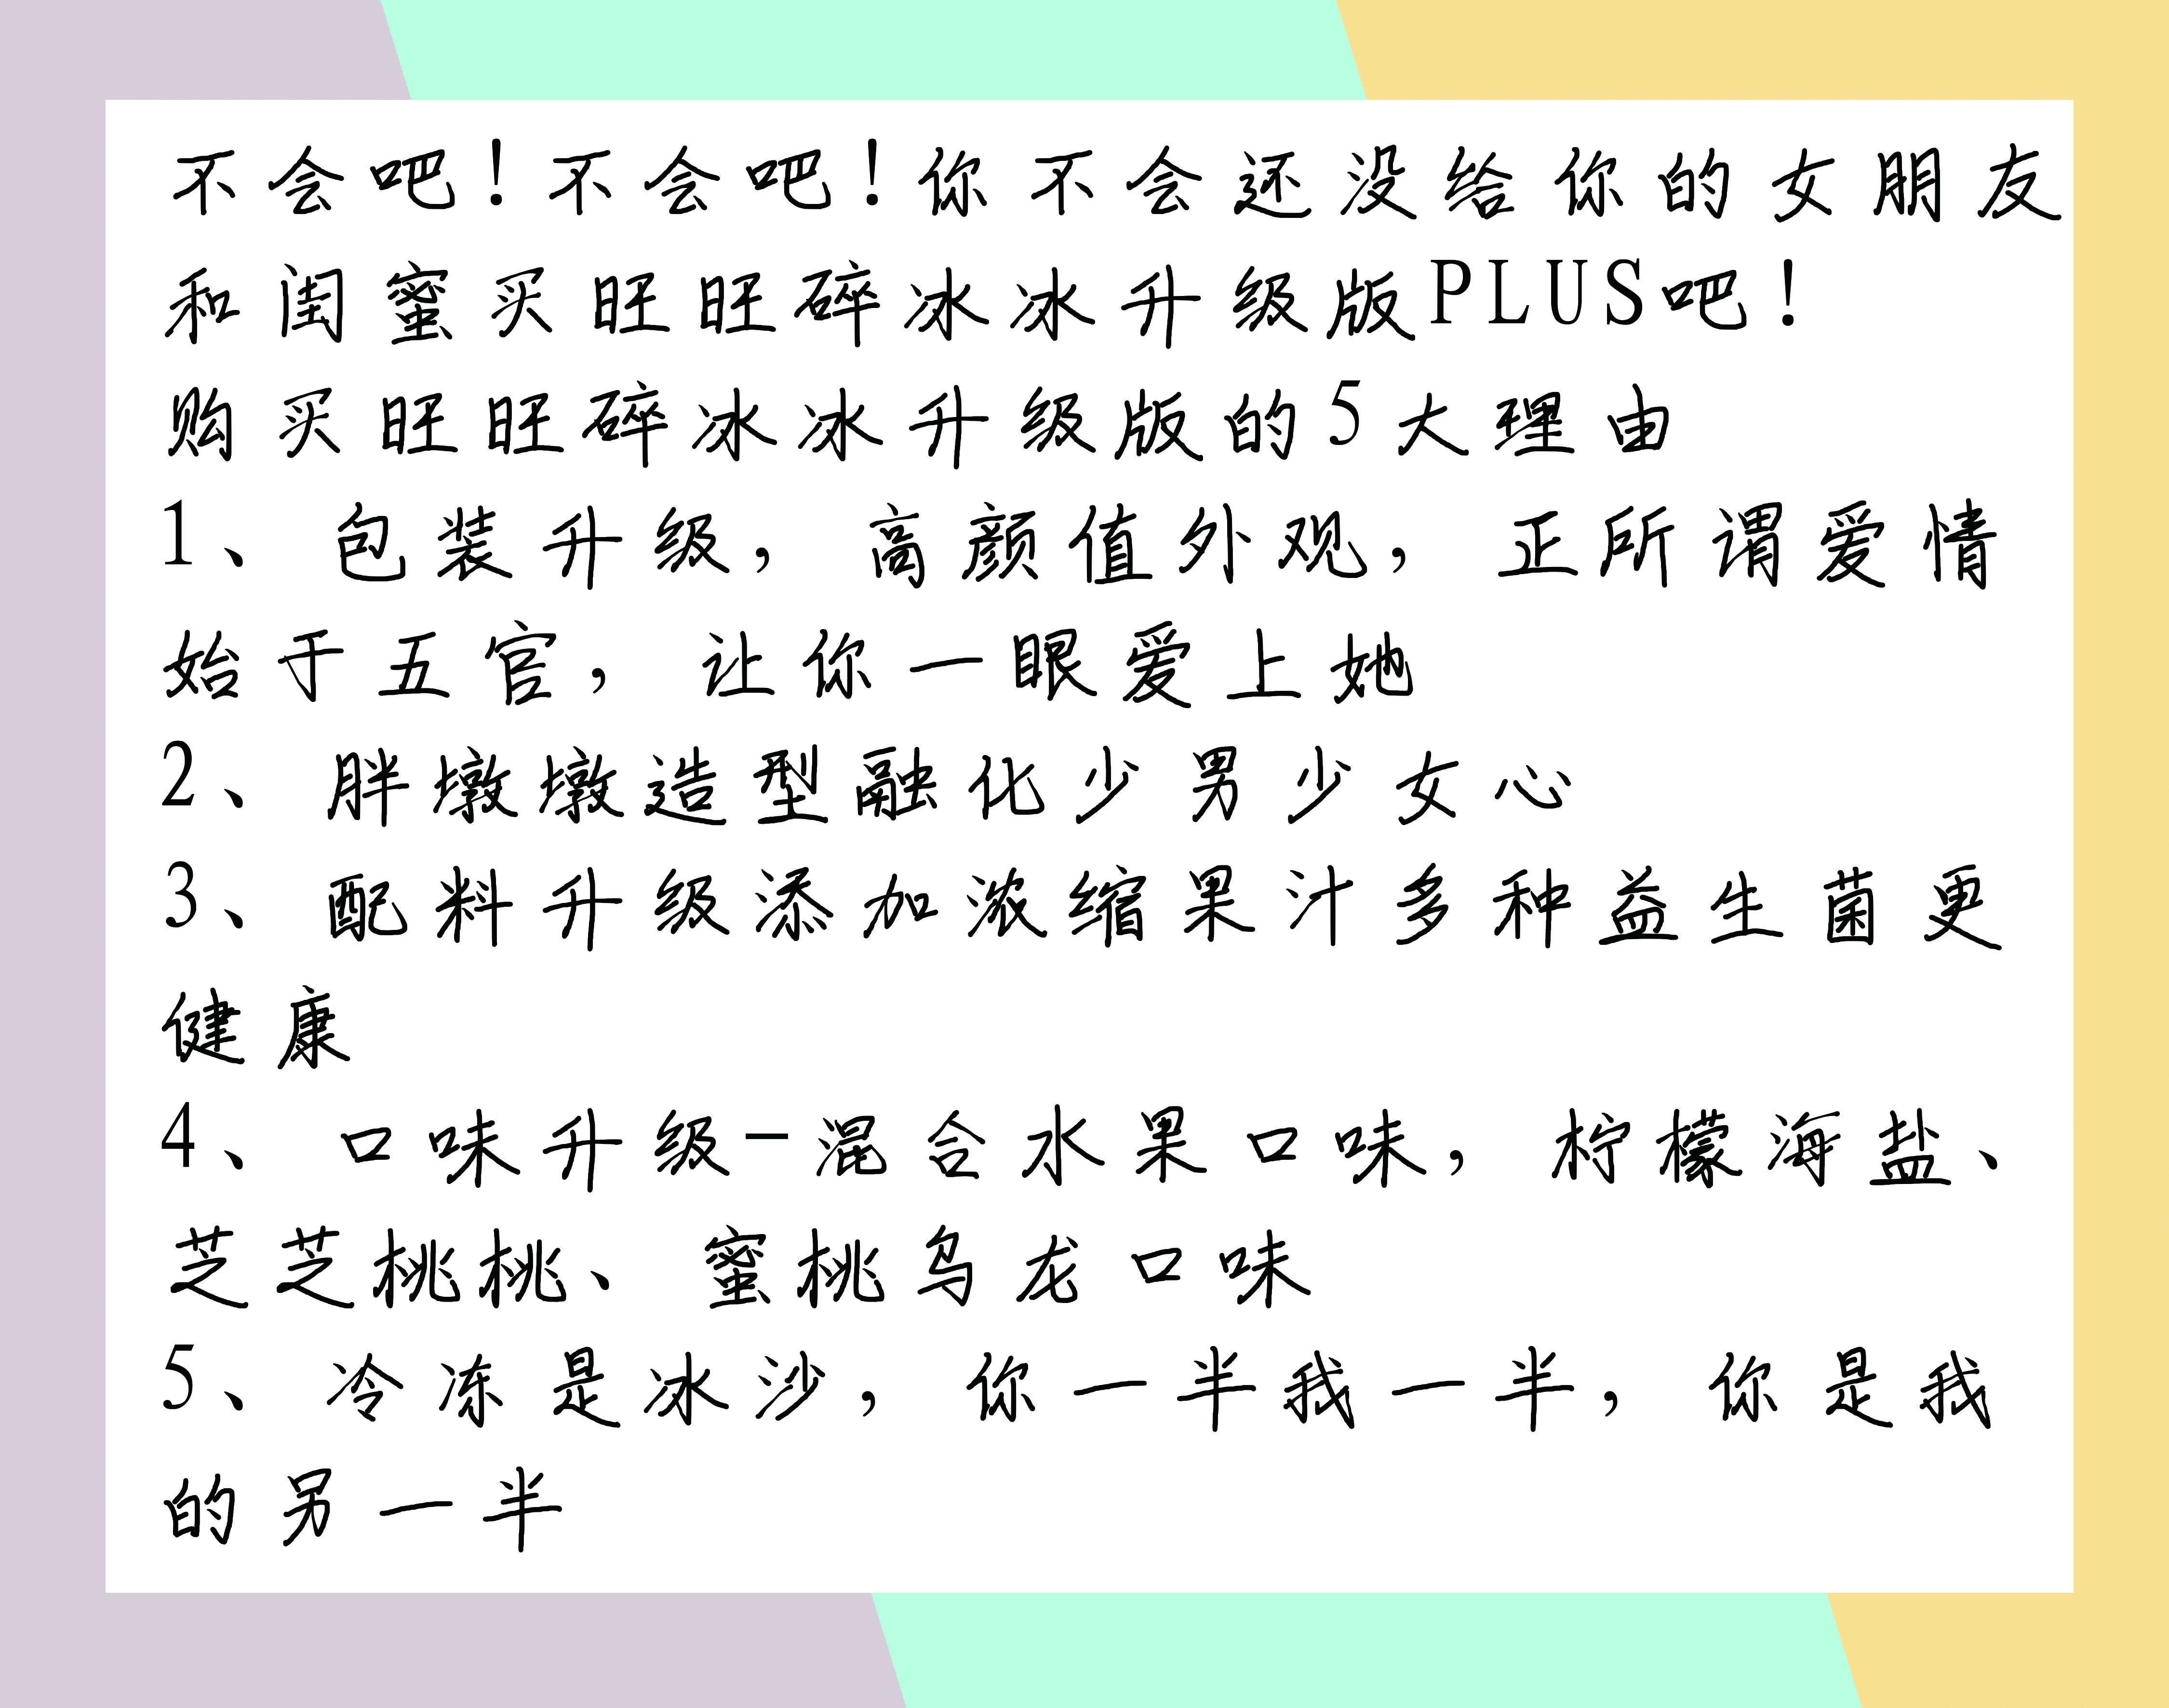 不会吧!不会吧!你不会还没给你的女朋友
和闺蜜买旺旺碎冰冰升级版PLUS吧!
购买旺旺碎冰冰升级版的5大理由
1、 包装升级, 高颜值外观, 正所谓爱情
始于五官, 让你一眼爱上她
2、 胖墩墩造型融化少男少女心
3、 配料升级添加浓缩果汁多种益生菌更
健康
4、 口味升级-混合水果口味, 柠檬海盐、
芝芝桃桃、 蜜桃乌龙口味
5、冷冻是冰沙, 你一半我一半, 你是我
的另一半